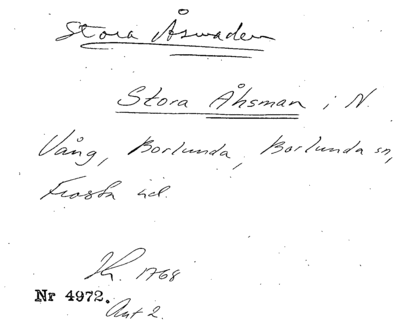 Stora Åsmaden
Stora Åhsman i N.
Vång, Borlunda, Borlunda sn,
Frosta hd.
1768
Nr 4972.
Akt 2.